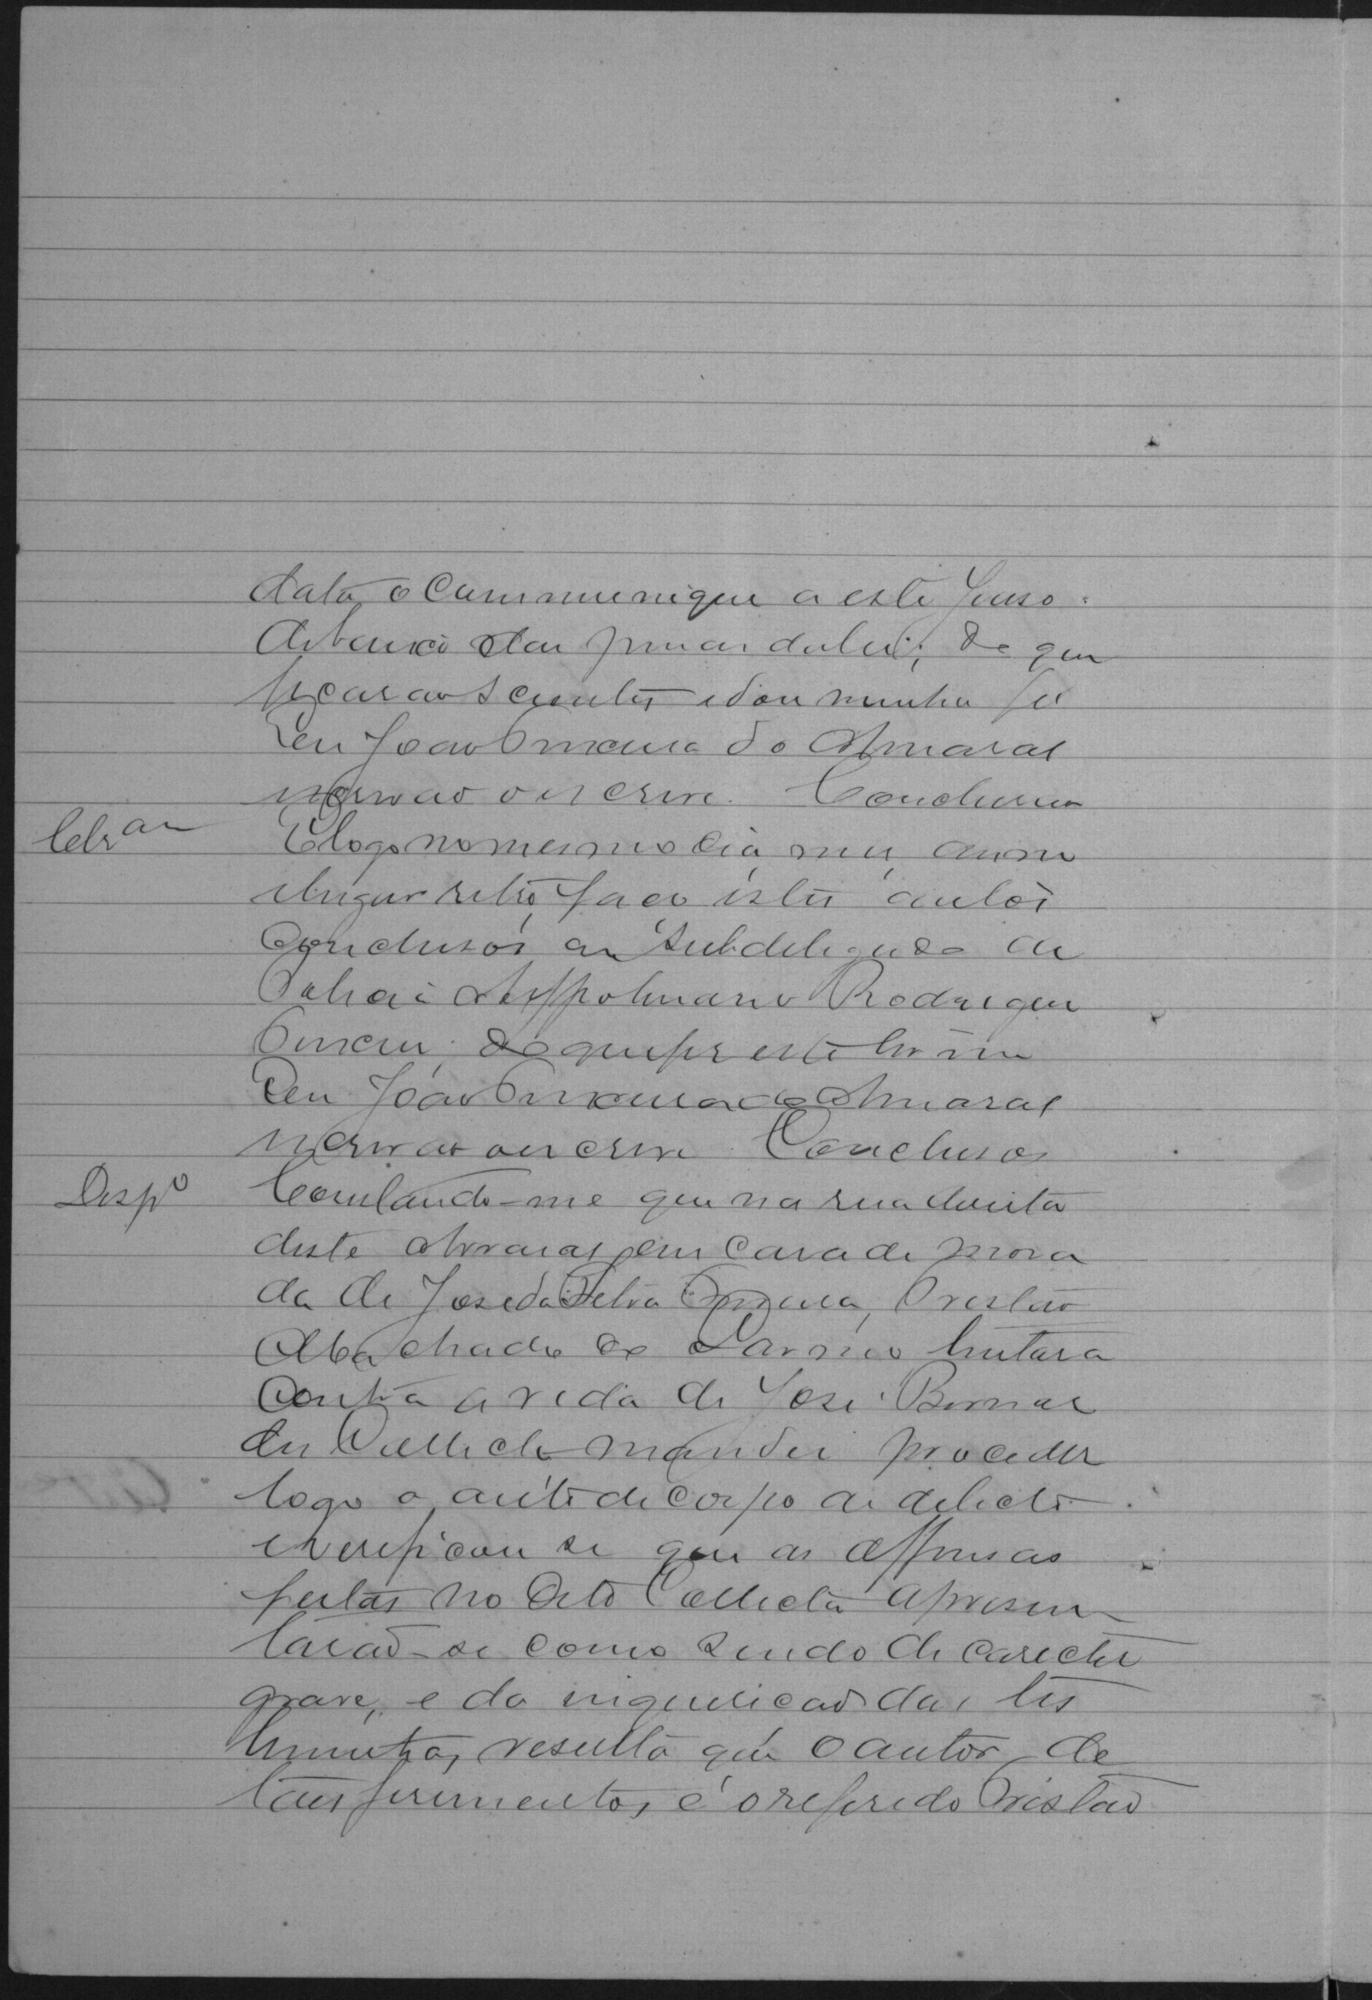 data, o communique a este Juiso.
debaixo das penas da lei; do que
ficarão scientes e dou minha fé
Eu João Pinxeira do Amaral
escrivão o escrevi. Conclusão
Clsam
E logo no mesmo dia, mez, anno
e lugar retro, faço estes autos
Conclusos, ao Subdelegado de
Policia Appolinario Rodrigues
do que fiz este termo
Eu João do Amaral
escrivão o escrevi. Conclusos
Despo
Constando-me que na rua direita
deste Arraial, em casa de mora
da de José da Silva Tristão
Machado de tentara
contra a vida de José Bernar
des Collecta mandei proceder
logo o auto de corpo de delicto
e verificou se que as offensas
feitas no dito Collecta apresen
tarão-se como sendo de carecter
grave, e da inquirição das tes
temunhas, resulta que o autor de
taes ferimentos, é o referido Tristão